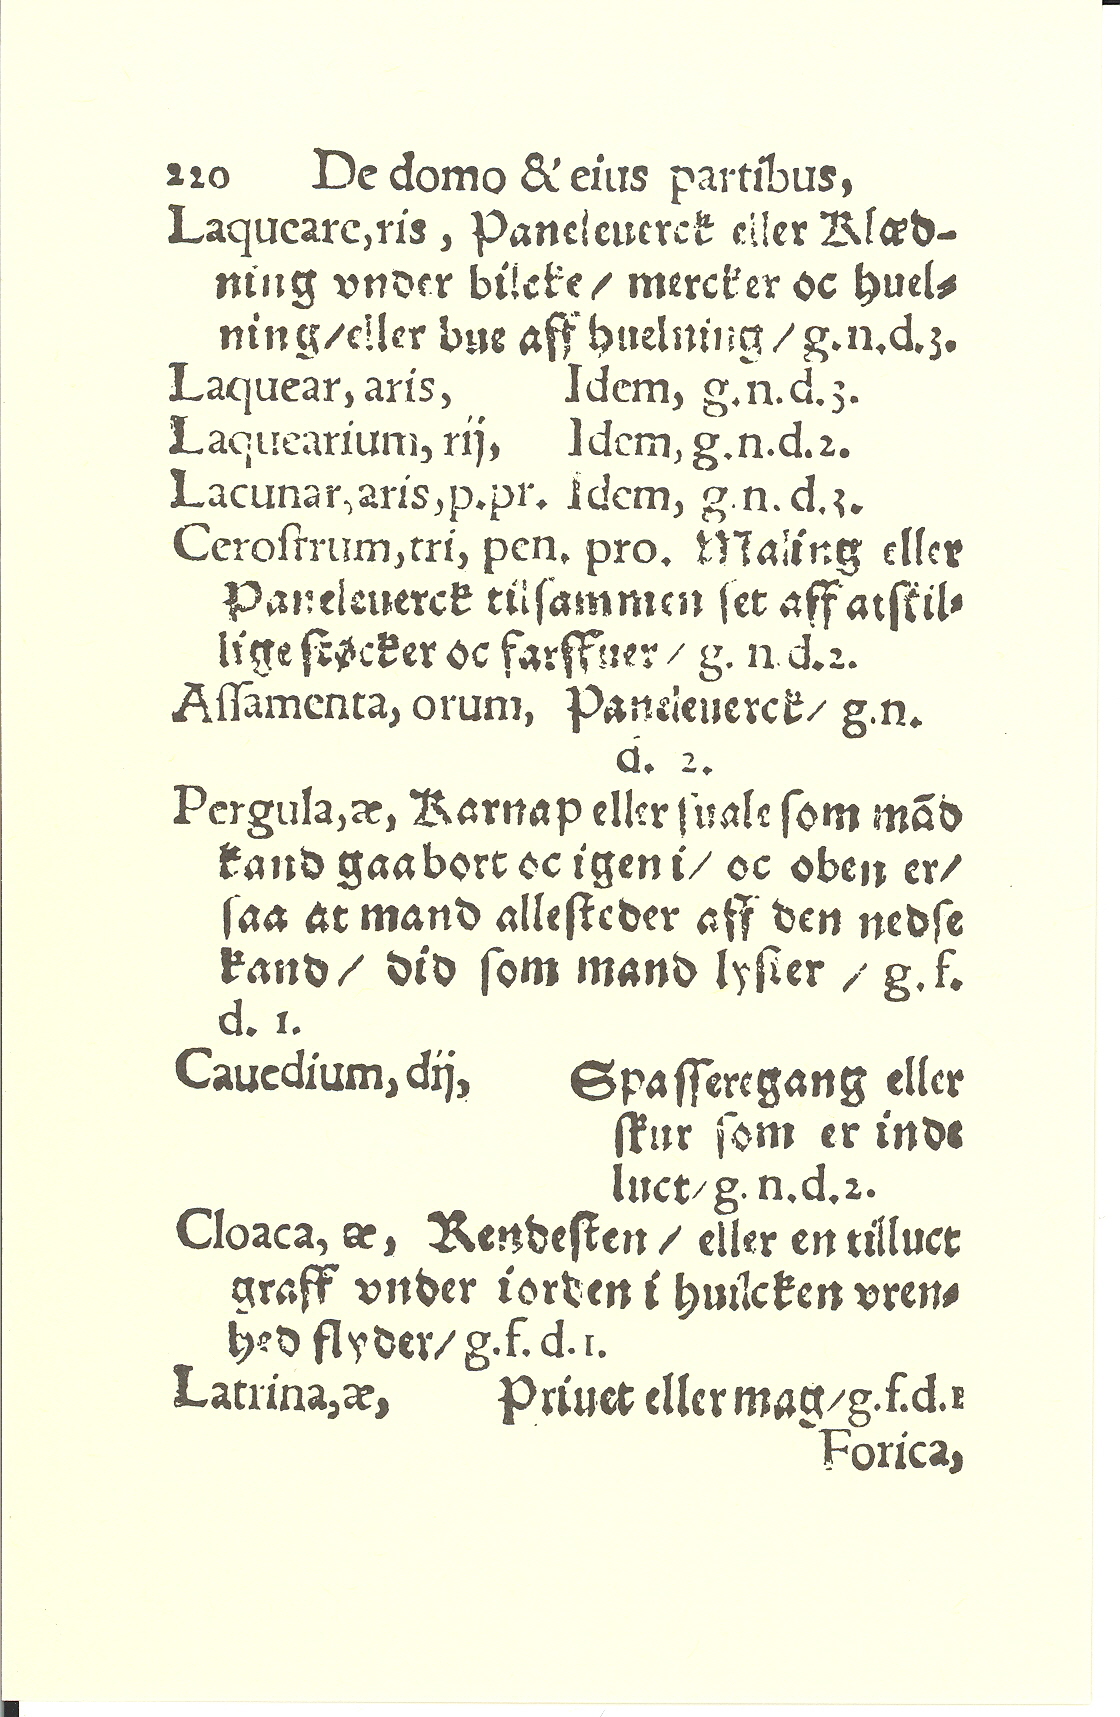 220 De domo & eius partibus,
Laqueare, ris, Paneleuerck eller Klæd-
ning vnder bilcke / mercker oc huel-
ning / eller bue aff huelning / g.n.d.3.
Laquear, aris, Idem, g.n.d.3.
Laquearium, rij, Idem, g.n.d.2.
Lacunar, aris, p.pr. Idem, g.n.d.3.
Ceroſtrum, tri, pen. pro. Maling eller
Paneleuerck tilſammen ſet aff atſkil-
lige ſtøcker oc farffuer / g.n.d.2.
Aſſamenta, orum, Paneleuerck / g.n.
d. 2.
Pergula, æ, Karnap eller ſuale ſom mād
kand gaa bort oc igen i / oc oben er /
ſaa at mand alleſteder aff den nedſe
kand / did ſom mand lyſter / g.f.
d. 1.
Cauedium, dij, Spaſſeregang eller
ſkur ſom er inde
luct / g.n.d.2.
Cloaca, æ, Rendeſten / eller en tilluct
graff vnder iorden i huilcken vren-
hed flyder / g.f.d.1.
Latrina, æ, Priuet eller mag / g.f.d.1
Forica,